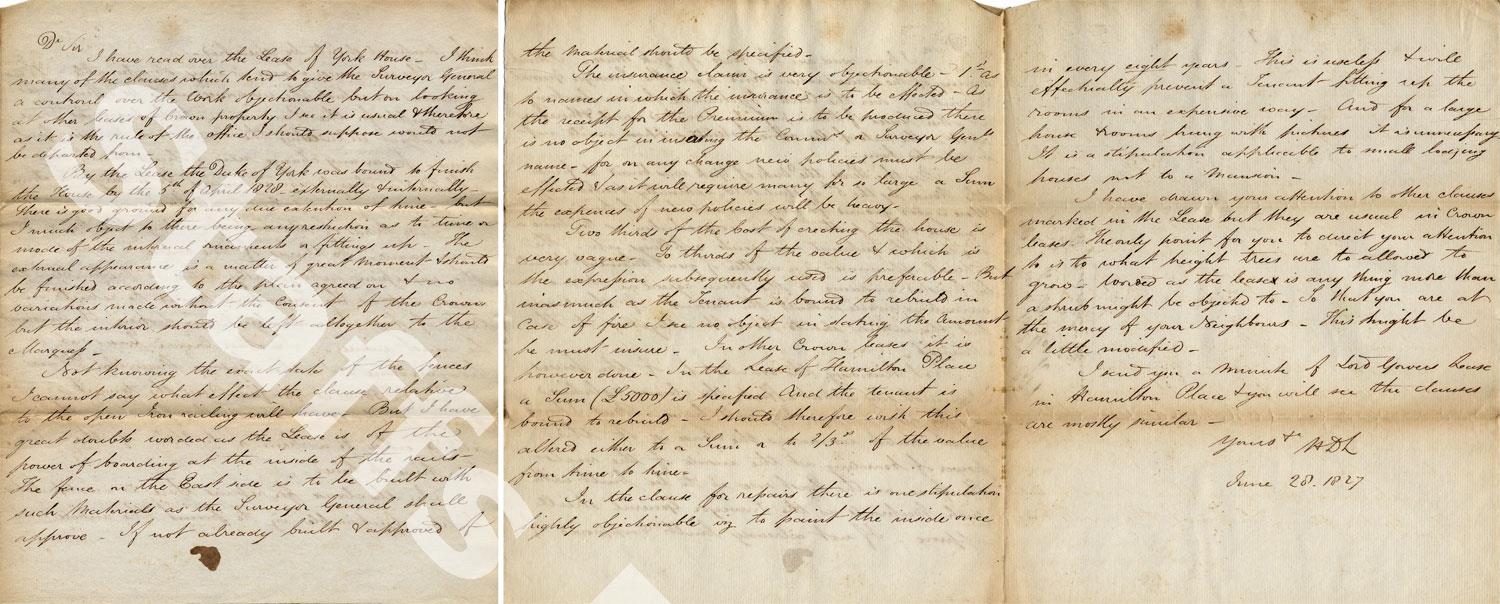 Dr Sir
I have read over the Lease of York House – I think
many of the clauses which tend to give the Surveyor General
a controul over the Work objectionable but on looking
at other leases of Crown property I see it is usual & therefore
as it is the rule of the office I should suppose would not
be departed from
By the Lease the Duke of York was bound to finish
the House by the 5th of April 1828 externally & internally –
There is good ground for any due extention of time – but
I much object to there being any restriction as to time or
mode of the internal ornaments or fitting up – The
external appearance is a matter of great moment & should
be finished according to the plan agreed on & no
variations made without the Consent of the Crown
but the interior should be left altogether to the
Marquess –
Not knowing the exact state of the fences
I cannot say what effect the clause relative
to the open Iron railing will have – But I have
great doubts worded as the Lease is of the
power of boarding at the inside of the rails –
The fence on the East side is to be built with
such Materials as the Surveyor General shall
approve – If not already built & approved of
the Material should be specified –
The insurance claim is very objectionable – 1st As
to names in which the insurance is to be effected – As
the receipt for the Premium is to be produced there
is no object in insuring the Commrs or Surveyor Genls
name – for on any change new policies must be
effected & as it will require many for so large a Sum
the expences of new policies will be heavy –
Two thirds of the Cost of erecting the house is
very vague – To thirds of the value & which is
the expression subsequently used is preferable – But
inasmuch as the Tenant is bound to rebuild in
case of fire I see no object in stating the Amount
he must insure – In other Crown leases it is
however done – In the Lease of Hamilton Place
a Sum (£5000) is specified And the tenant is
bound to rebuild – I should therefore wish this
altered either to a Sum or to 2/3rds of the value
from time to time –
In the clause for repairs there is one stipulation
highly objectionable viz to paint the inside once
in every eight years – This is useless & will
effectually prevent a Tenant fitting up the
rooms in an expensive way – And for a large
house & rooms hung with pictures it is unnecessary
It is a stipulation applicable to small lodging
houses not to a Mansion –
I have drawn your attention to other clauses
marked in the Lease but they are usual in Crown
leases. The only point for you to direct your attention
to is to what height trees are to allowed to
grow – Worded as the lease is any thing more than
a shrub might be objected to – So that you are at
the mercy of your Neighbours – This might be
a little modified –
I send you a Minute of Lord Gowers Lease
in Hamilton Place & you will see the clauses
are mostly similar –
Yours &c HDL
June 28. 1827